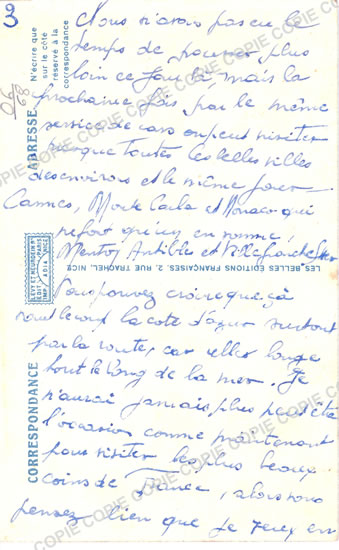 3
Nous n'avons pas eu le
temps de pousser plus
loin ce jour là mais la
prochaine fois par le même
service de cars on peut visiter
presque toutes les belles villes
des environs et le même jour
Cannes, Monte Carlo et Monaco qui
ne font qu'un en somme,
Menton, Antibes et Villefranche sur
Vous pouvez croire que çà
vaut le coup la cote d'azur surtout
par la route, car elle longe
tout le long de la mer. Je
n'aurai jamais plus peut être
l'occasion comme maintenant
pour visiter les plus beaux
coins de France, alors vous
pensez bien que je veux en
ADRESSE
N'écrire que
sur le côté
réservé à la
correspondance
LES BELLES ÉDITIONS FRANÇAISES, 2, RUE TRACHEL, NICE
LEVY ET NEURDEIN RÉUNIS
PARIS
IMP.
CORRESPONDANCE
06
68
COPIE COPIE COPIE COPIE COPIE COPIE